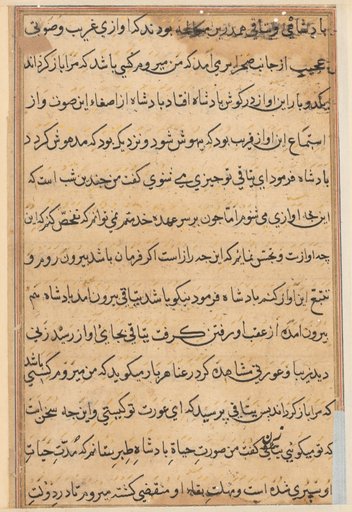 پادشاه و یتاقی هم درین مکالمه بودند که آوازی غریب و صوتی
عجیب از جانب صحرا بر می آمد که من میروم کیی باشد که مرا باز گرداند
یکدو بار این آواز در گوش پادشاه افتاد پادشاه از اصغاء این صوت و از
استماع این آواز قریب بود که بیهوش شود و نزدیک بود که مدهوش گردد
پادشاه فرمود ای یتاقی تو چیزی می شنوی گفت من چندین شب است که
این چه آوازی می شنوم اما چون بر سر عهده خدمتم نمی توانم که تفحص کنم که این
چه آوازست و تجسس نمایم که این چه رازست اگر فرمان باشد بیرون روم و
تتبع این آواز کنم پادشاه فرمود نیکو باشد یتاقی بیرون آمد پادشاه هم
بیرون آمده از عقب او رفتن گرفت یتاقی بجای آواز رسید زنی
دید زیبا و عورتی مشاهده کرد رعنا هر بار میگوید که من میروم کیی باشد
که مرا باز گرداند پس یتاقی پرسید که ای عورت تو کیستی و این چه سخن است
که تو میگوئی زن گفت من صورت حیاة پادشاه طبرستانم که مدت حیات
او سپری شده است و مهلت بقاء او منقضی گشته میروم تا در دولت